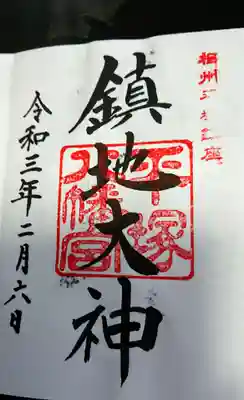 相州
鎮地大神
平塚
八幡宮
令和三年二月六日